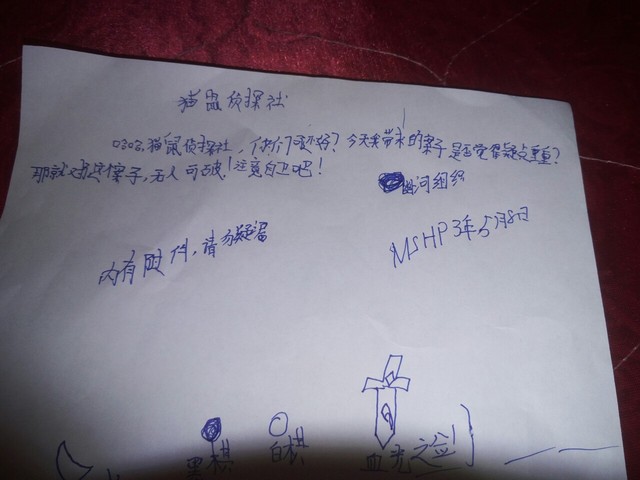 猫盟侦探社
哈哈,猫鼠侦探社,你们还好?今天来带来的案子是否觉得疑点重重?
那就对这案子,无人可破!注意自卫吧!
幽河组织
内有附件,请勿疑留
MSHP3年5月8日
黑棋 白棋 血光之剑